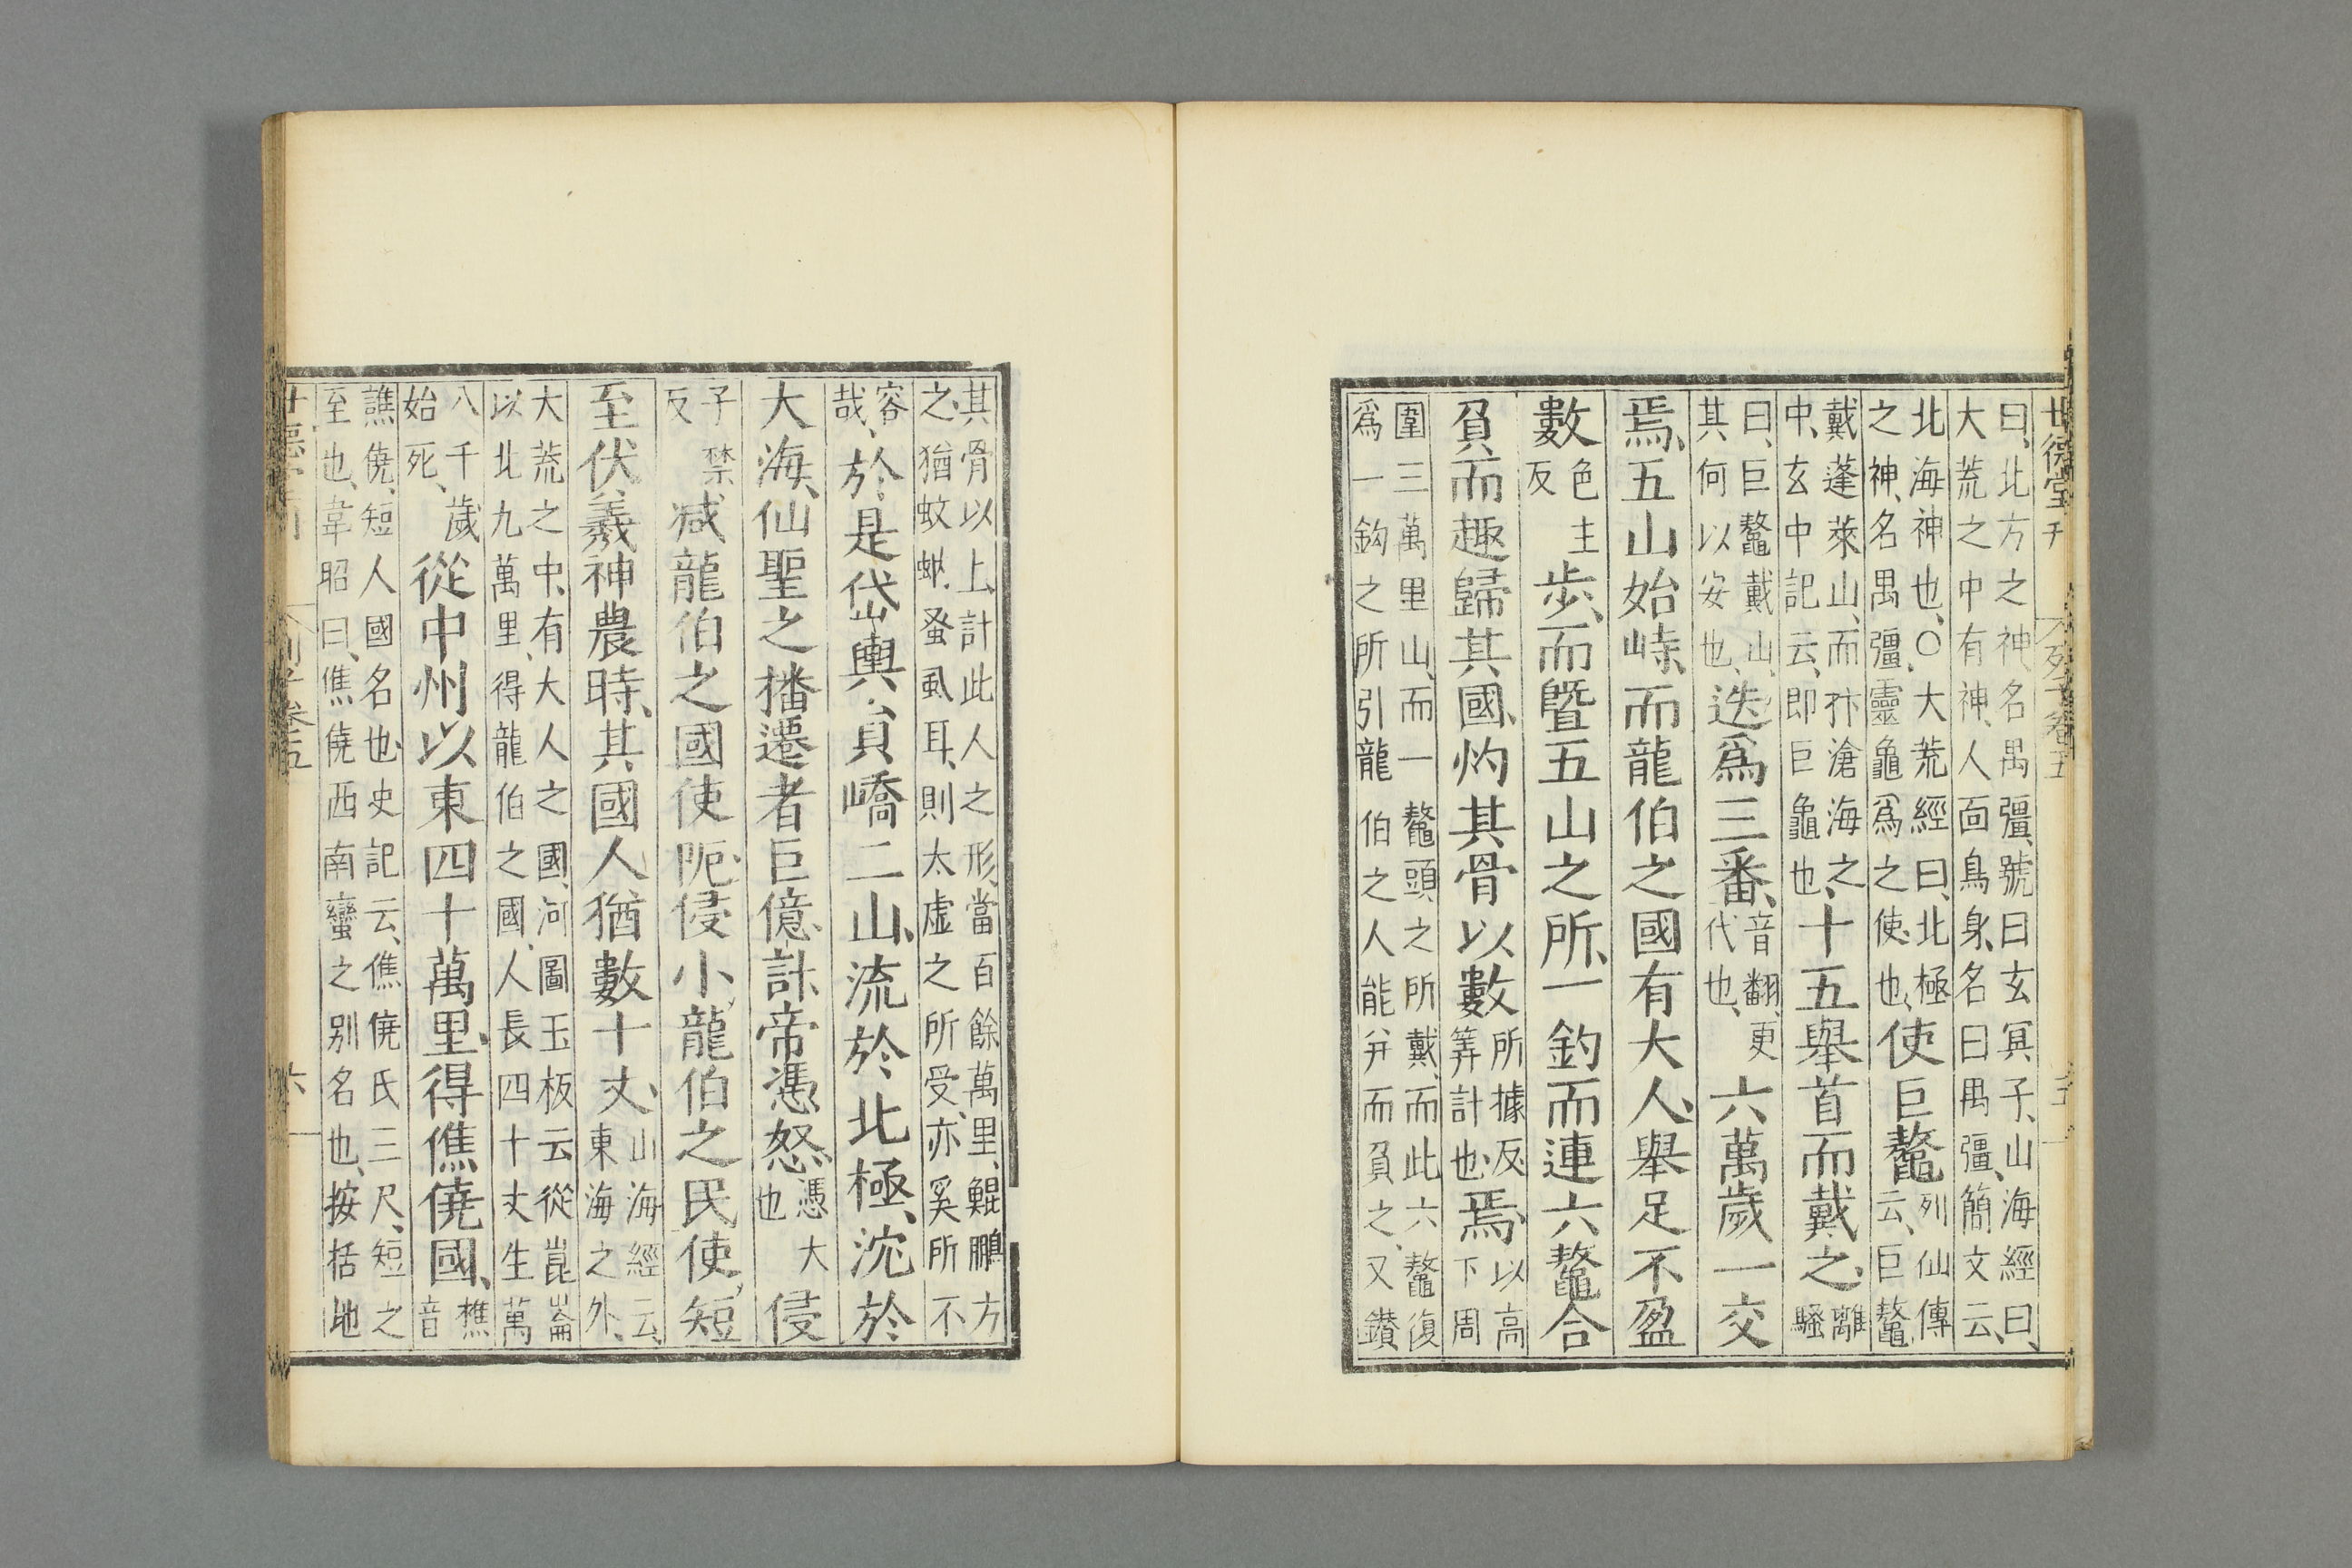 世德堂刊 列子卷五 五
曰、北方之神名禺彊、號曰玄冥子、山海經曰、
大荒之中有神、人面鳥身、名曰禺彊、簡文云、
北海神也、○大荒經曰、北極
之神、名禺彊、靈龜爲之使也、
使巨鼇
列仙傳
云、巨鼇
戴蓬萊山、而抃滄海之
中、玄中記云、即巨龜也、
十五舉首而戴之、
離
騷
曰、巨鼇戴山、
其何以安也、
迭爲三番、
音翻、更
代也、
六萬歲一交
焉、五山始峙、而龍伯之國有大人、舉足不盈
數
色主
反
步、而暨五山之所、一釣而連六鼇合
負而趣歸其國、灼其骨以數
所據反、
筭計也、
焉、
以高
下周
圍三萬里山、而一鼇頭之所戴、而此六鼇復
爲一鈎之所引龍伯之人能并而負之、又鑽
其骨以上、計此人之形、當百餘萬里、鯤鵬方
之、猶蚊蚋、蚤虱耳、則太虛之所受、亦奚所不
容
哉、
於是岱輿、員嶠二山、流於北極、沈於
大海、仙聖之播遷者巨億、計帝憑怒、
憑大
也
侵
子禁、
反
减龍伯之國使阨、侵小、龍伯之民使、短
至伏羲神農時、其國人猶數十丈、
山海經云、
東海之外、
大荒之中、有大人之國、河圖玉板云從崑崙
以北九萬里、得龍伯之國、人長四十丈生萬
八千歲
始死、
從中州以東四十萬里、得僬僥國、
樵
音
譙僥、短人國名也、史記云、僬僥氏三尺、短之
至也、韋昭曰、僬僥西南蠻之别名也、按括地
世德堂刊 列子卷五 六